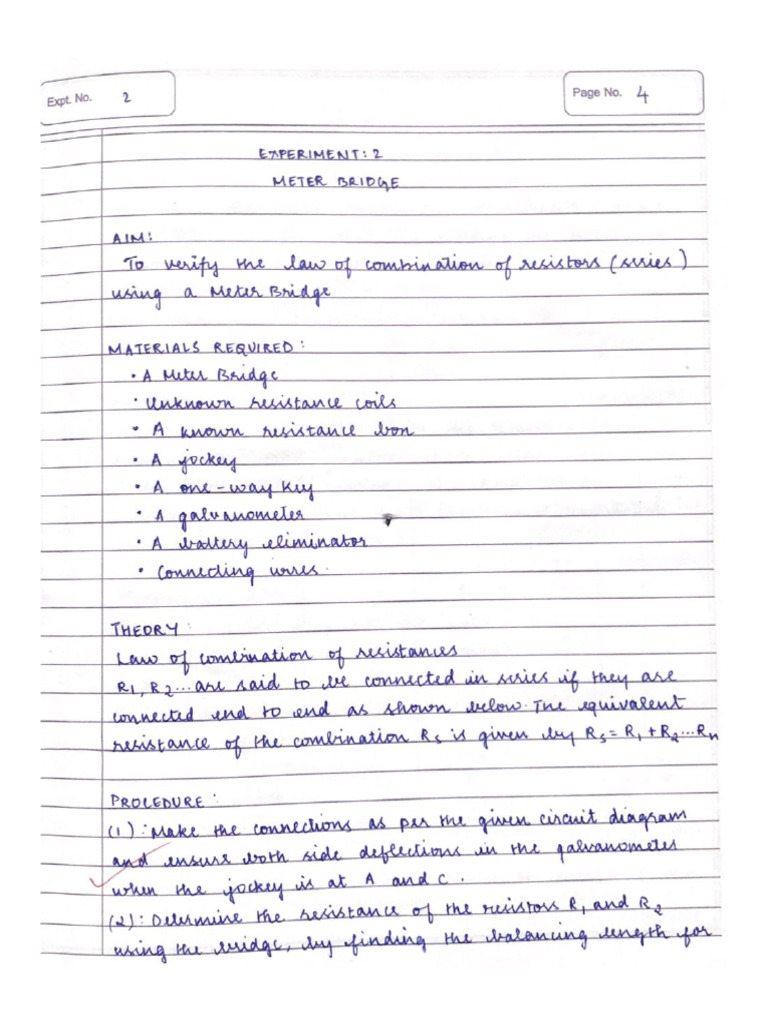 Expt. No. 2
Page No. 4
EXPERIMENT: 2
METER BRIDGE
AIM:
To verify the law of combination of resistors (series)
using a Meter Bridge
MATERIALS REQUIRED:
• A Meter Bridge
• Unknown resistance coils
• A known resistance box
• A jockey
• A one-way key
• A galvanometer
• A battery eliminator
• Connecting wires.
THEORY:
Law of combination of resistances
R1, R2... are said to be connected in series if they are
connected end to end as shown below. The equivalent
resistance of the combination Rs is given by Rs = R1 + R2...Rn
PROCEDURE:
(1): Make the connections as per the given circuit diagram
and ensure both side deflections in the galvanometer
when the jockey is at A and C.
(2): Determine the resistance of the resistors R1 and R2
using the bridge, by finding the balancing length for